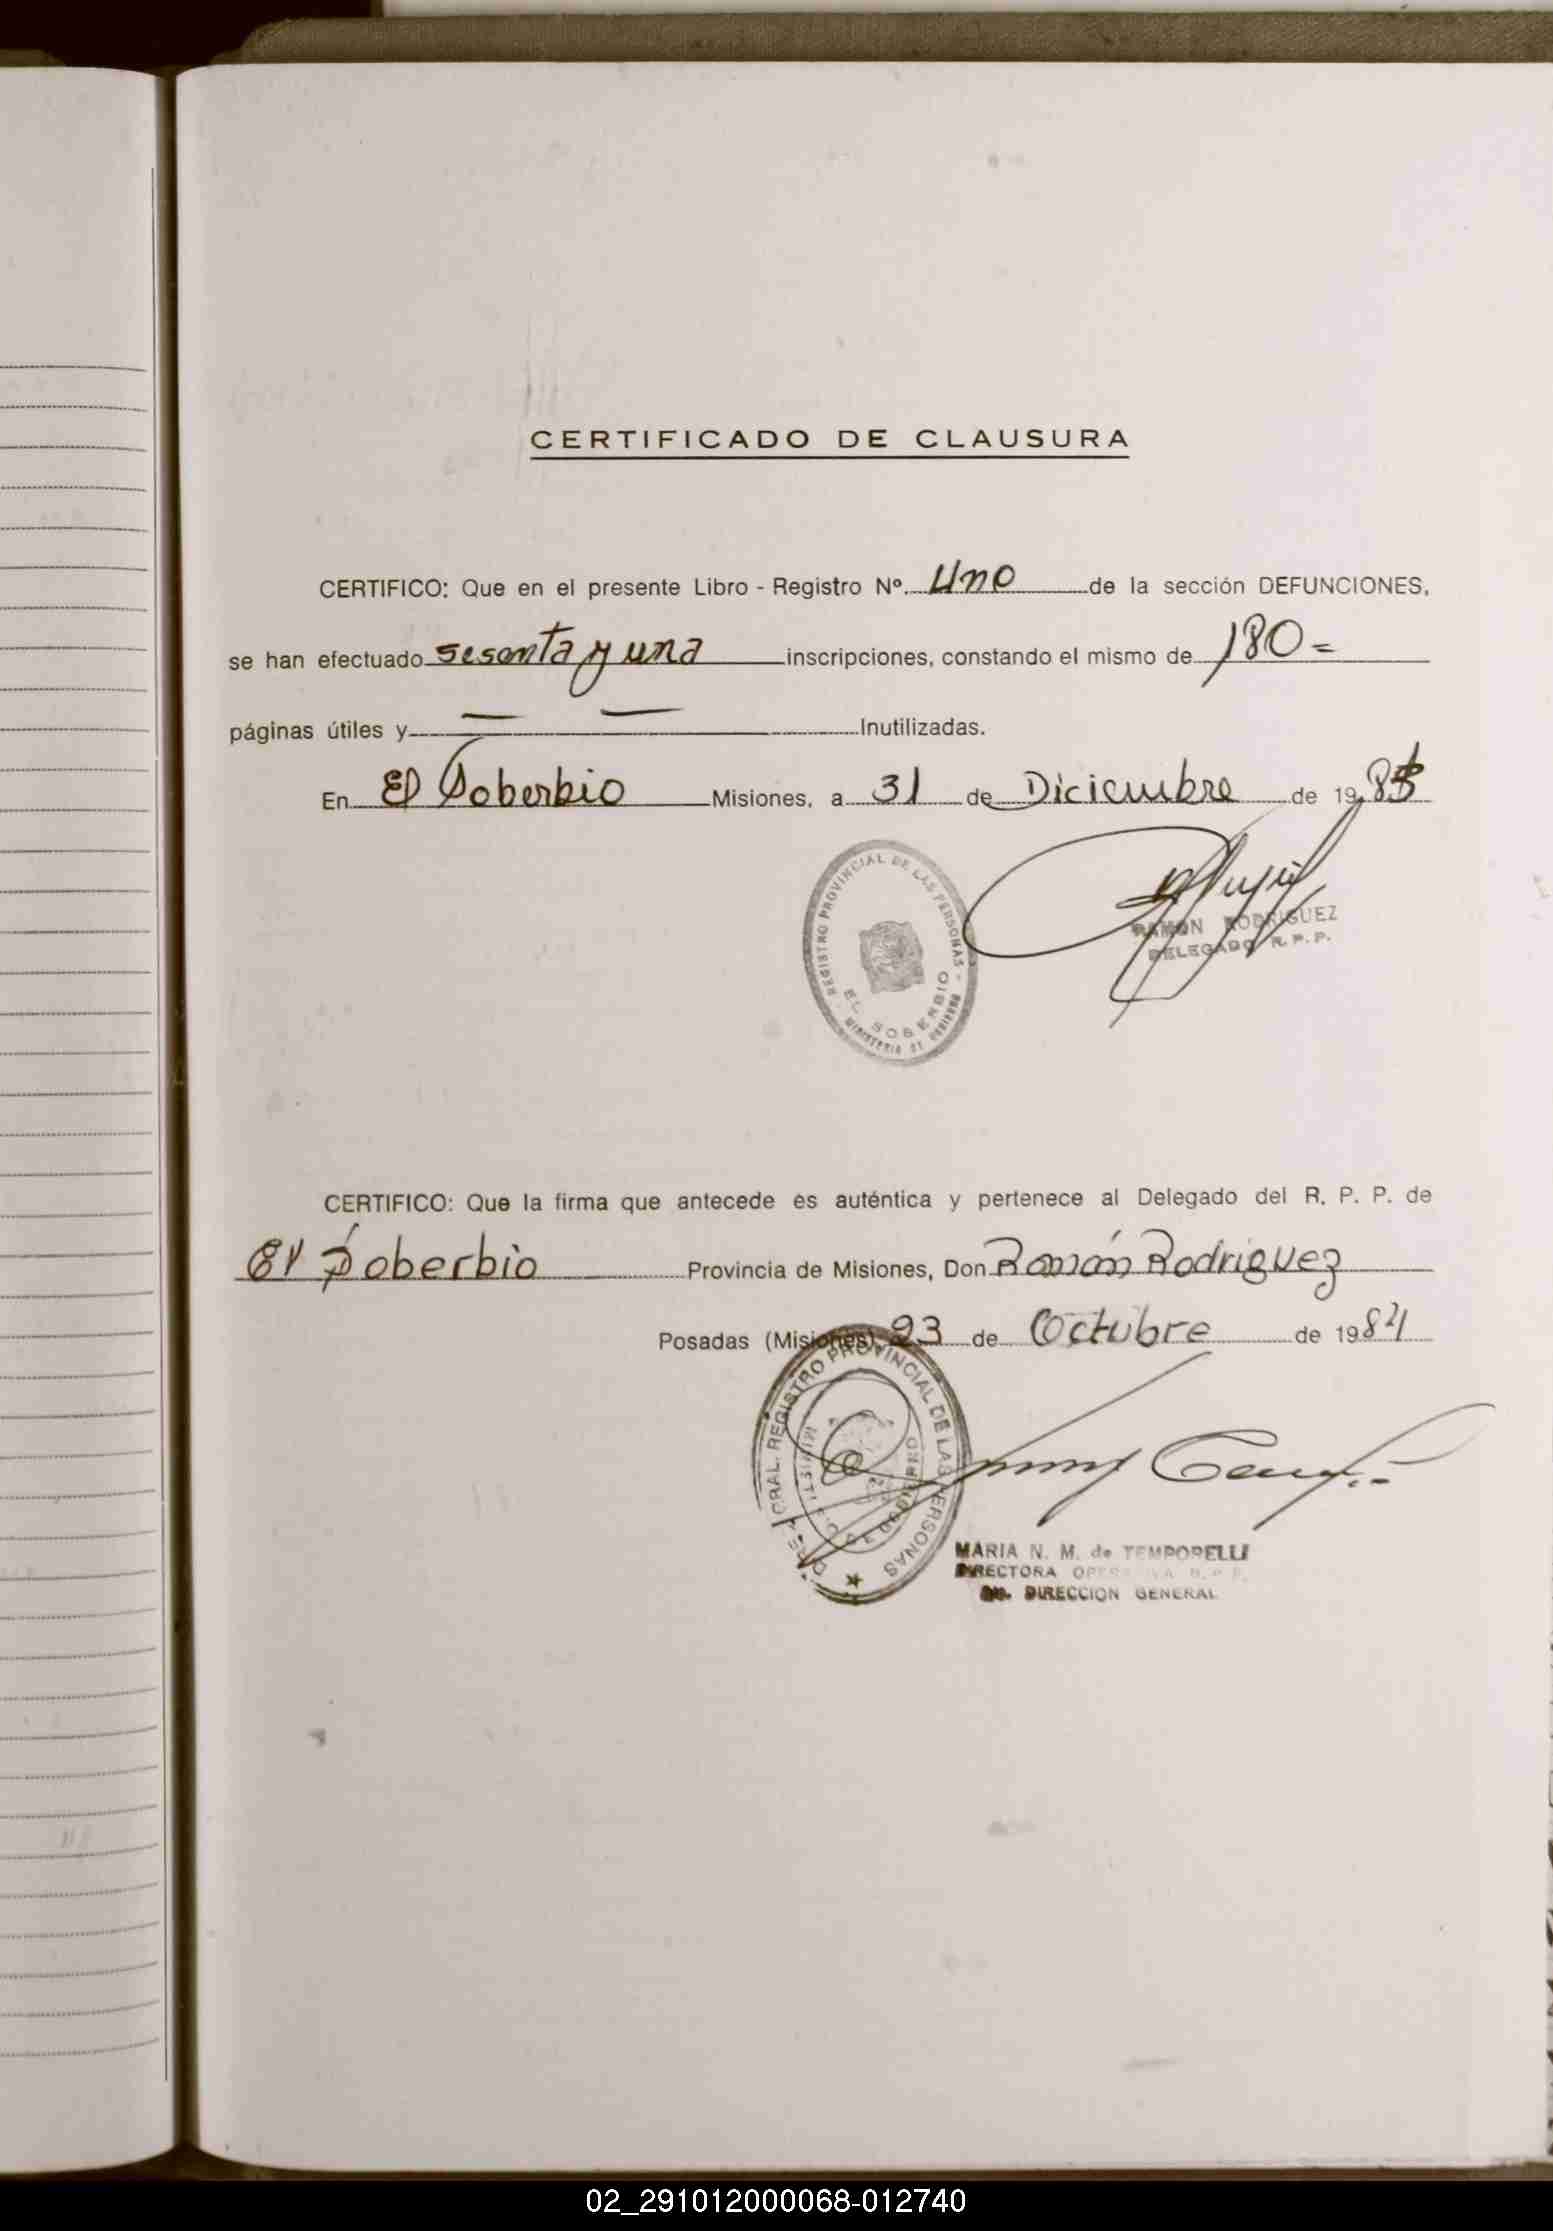 CERTIFICADO DE CLAUSURA
CERTIFICO: Que en el presente Libro - Registro Nº. Uno de la sección DEFUNCIONES,
se han efectuado sesenta y una inscripciones, constando el mismo de 180 =
páginas útiles y — — Inutilizadas.
En El Soberbio Misiones, a 31 de Diciembre de 198
REGISTRO PROVINCIAL DE LAS PERSONAS -
EL SOBERBIO
MINISTERIO DE GOBIERNO
RAMON RODRIGUEZ
DELEGADO R. P. P.
CERTIFICO: Que la firma que antecede es auténtica y pertenece al Delegado del R. P. P. de
El Soberbio Provincia de Misiones, Don Ramón Rodriguez
Posadas (Misiones) 23 de Octubre de 1984
GRAL. REGISTRO PROVINCIAL DE LAS PERSONAS
MARIA N. M. de TEMPORELLI
DIRECTORA
DIRECCION GENERAL
02_291012000068-012740